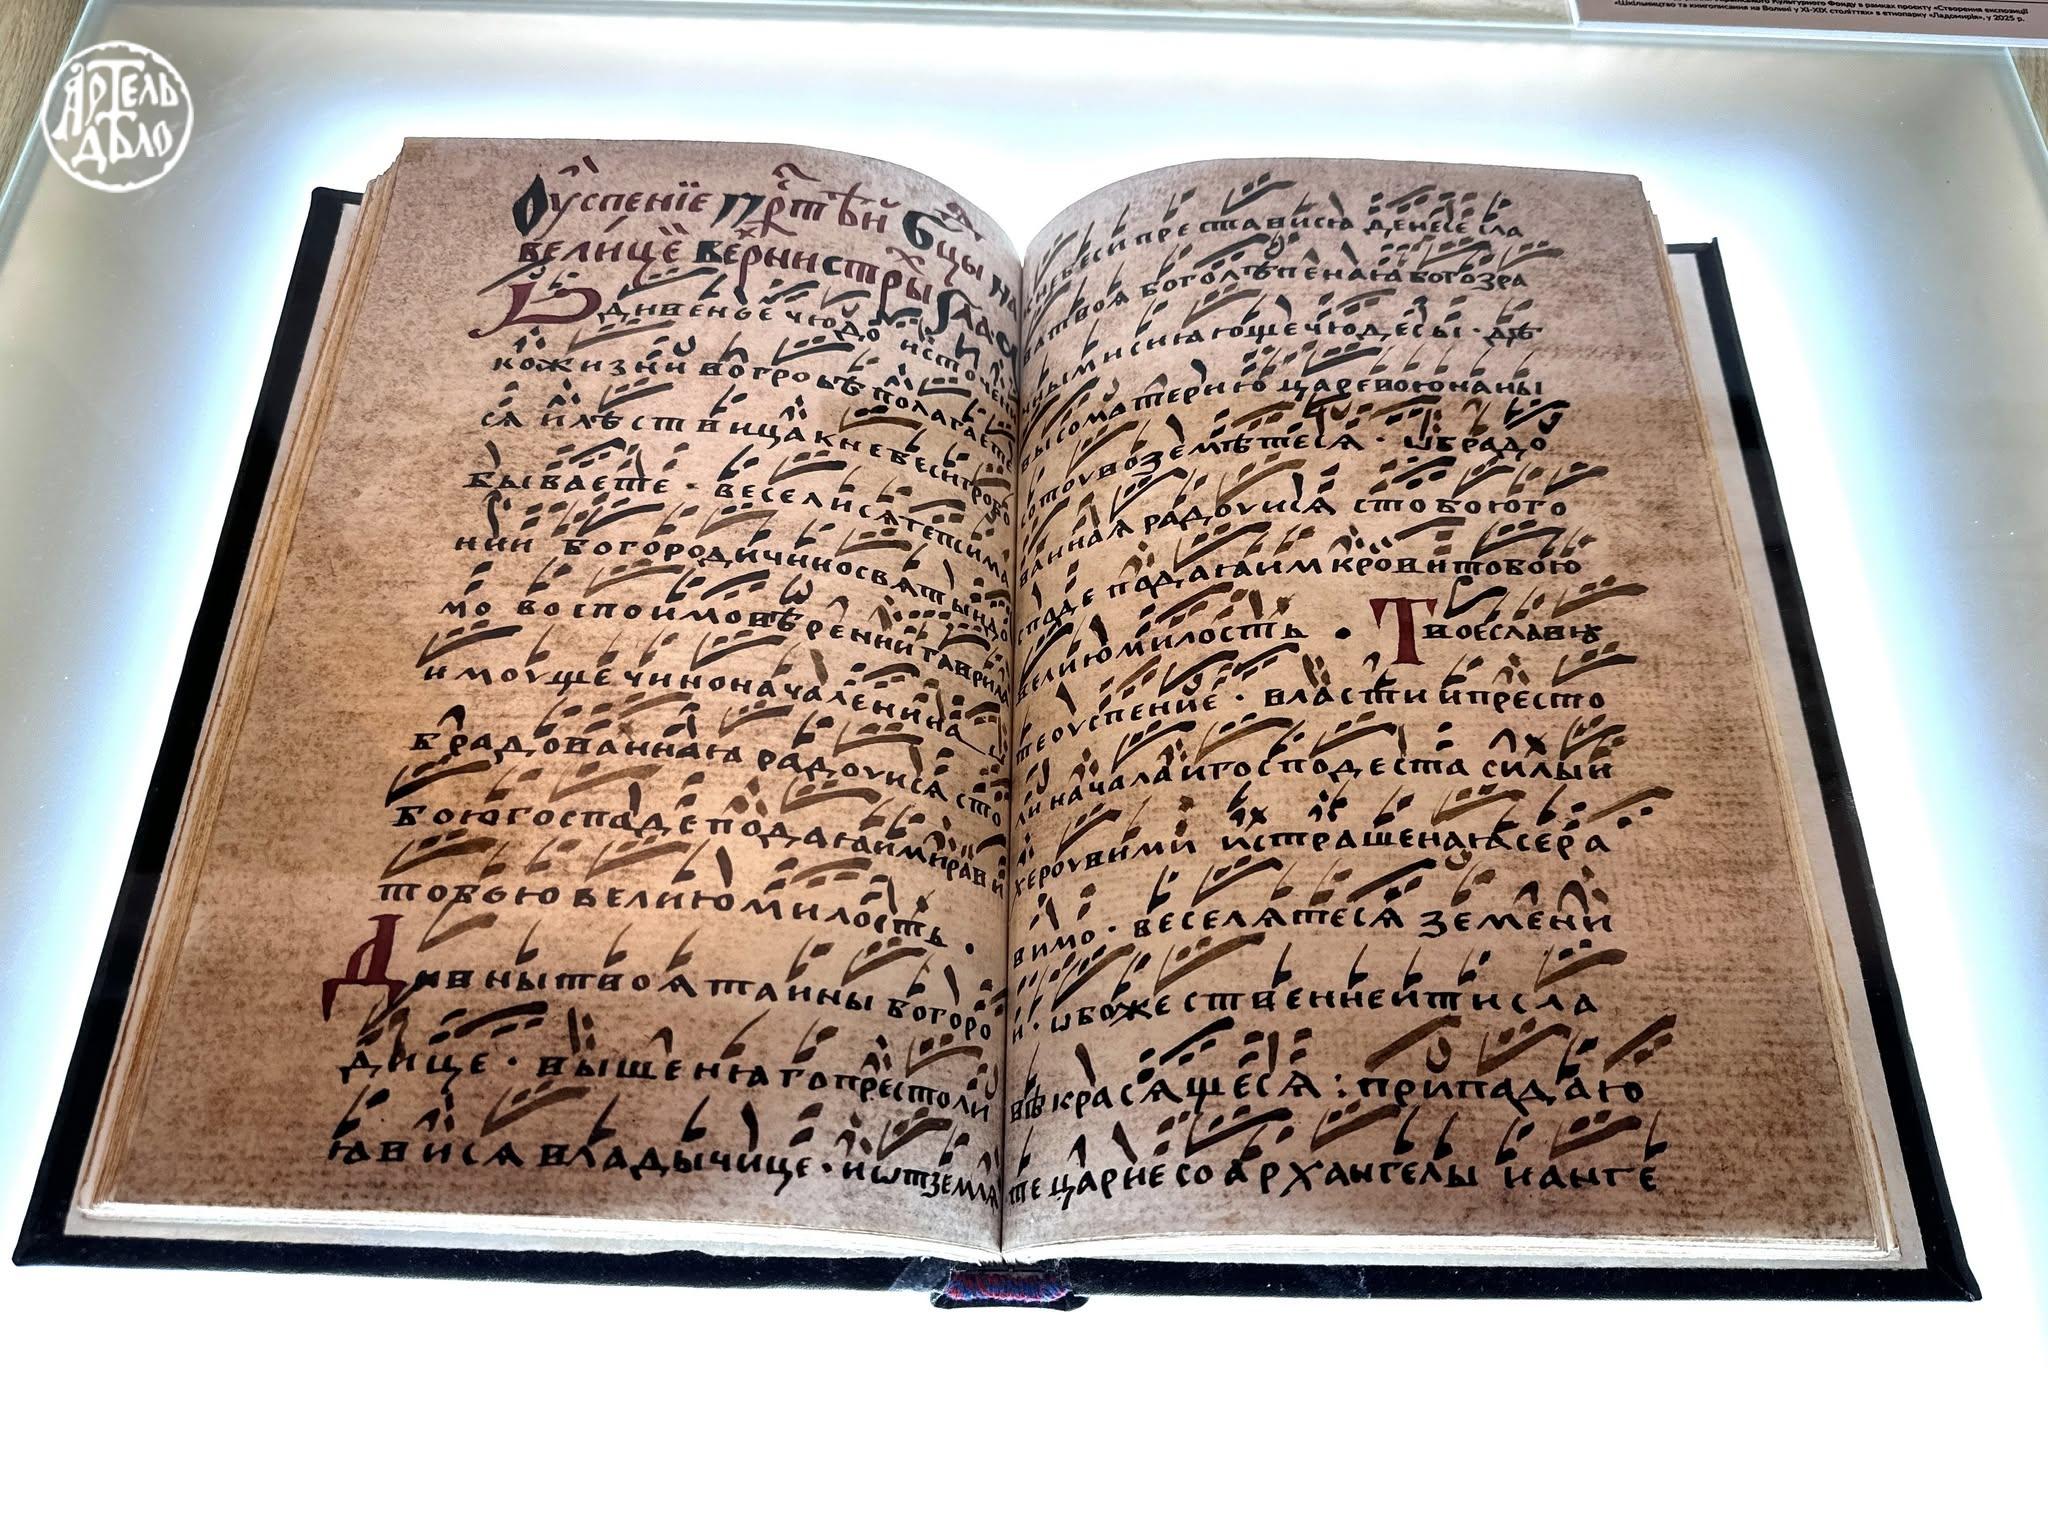 Українського Культурного Фонду в рамках проєкту «Створення експозиції
«Шкільництво та книгописання на Волині у XI-XIX століттях» в етнопарку «Ладомирія», у 2025 р.
АРТЕЛЬ
ДѢЛО
Оуспенїе Прⷭ҇тѣй Бцы на
велицѣй вечⷬ҇ни стⷯры Глас
дивеное чюдо источени
ко жизни во гробѣ полагаете
ся и лѣствица к небеси гробо
бываете · веселися гепсима
нии богородичино святыи до
мо воспоимо вѣрении гаврила
имоуще чиноначаленика
брадованная радоуися с то
бою госпаде подаяаи мирави
тобою велию милость ·
Дивны твоя таины богоро
дице · вышеняго престоли
яви ися владычице · и ѿ земля
к небеси преставися денесе сла
ва твоя боголѣпеная богозра
ными сияюще чюдесы · дѣ
вы со материю царевою на вы
соту воземѣтеся · ѡбрадо
ванная радоуися с тобою го
споде подаяаи мирови тобою
велию милость · Твое славѧ
те оуспение · власти и престо
ли начала и господеста силы и
хероувими и страшеная сера
вимо · веселятеся земени
и · ѡ божественнеи ти сла
вѣ красящеся : припадаю
те царие со архангелы и анге